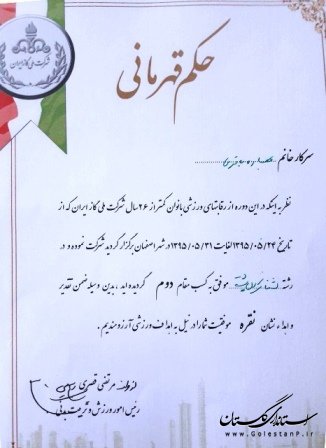 شرکت ملی گاز ایران
حکم قهرمانی
سرکار خانم
نظر به اینکه در این دوره از رقابتهای ورزشی بانوان کمتر از ۲۶ سال شرکت ملی گاز ایران که از
تاریخ ۱۳۹۵/۰۵/۲۴ لغایت ۱۳۹۵/۰۵/۳۱ در شهر اصفهان برگزار گردید شرکت نموده و در
رشته موفق به کسب مقام دوم گردیده اید ، بدین وسیله ضمن تقدیر
و اهداء نشان نقره موفقیت شما را در نیل به اهداف ورزشی آرزومندیم .
مرتضی قصری
رئیس امور ورزش و تربیت بدنی
استانداری گلستان
www.GolestanP.ir